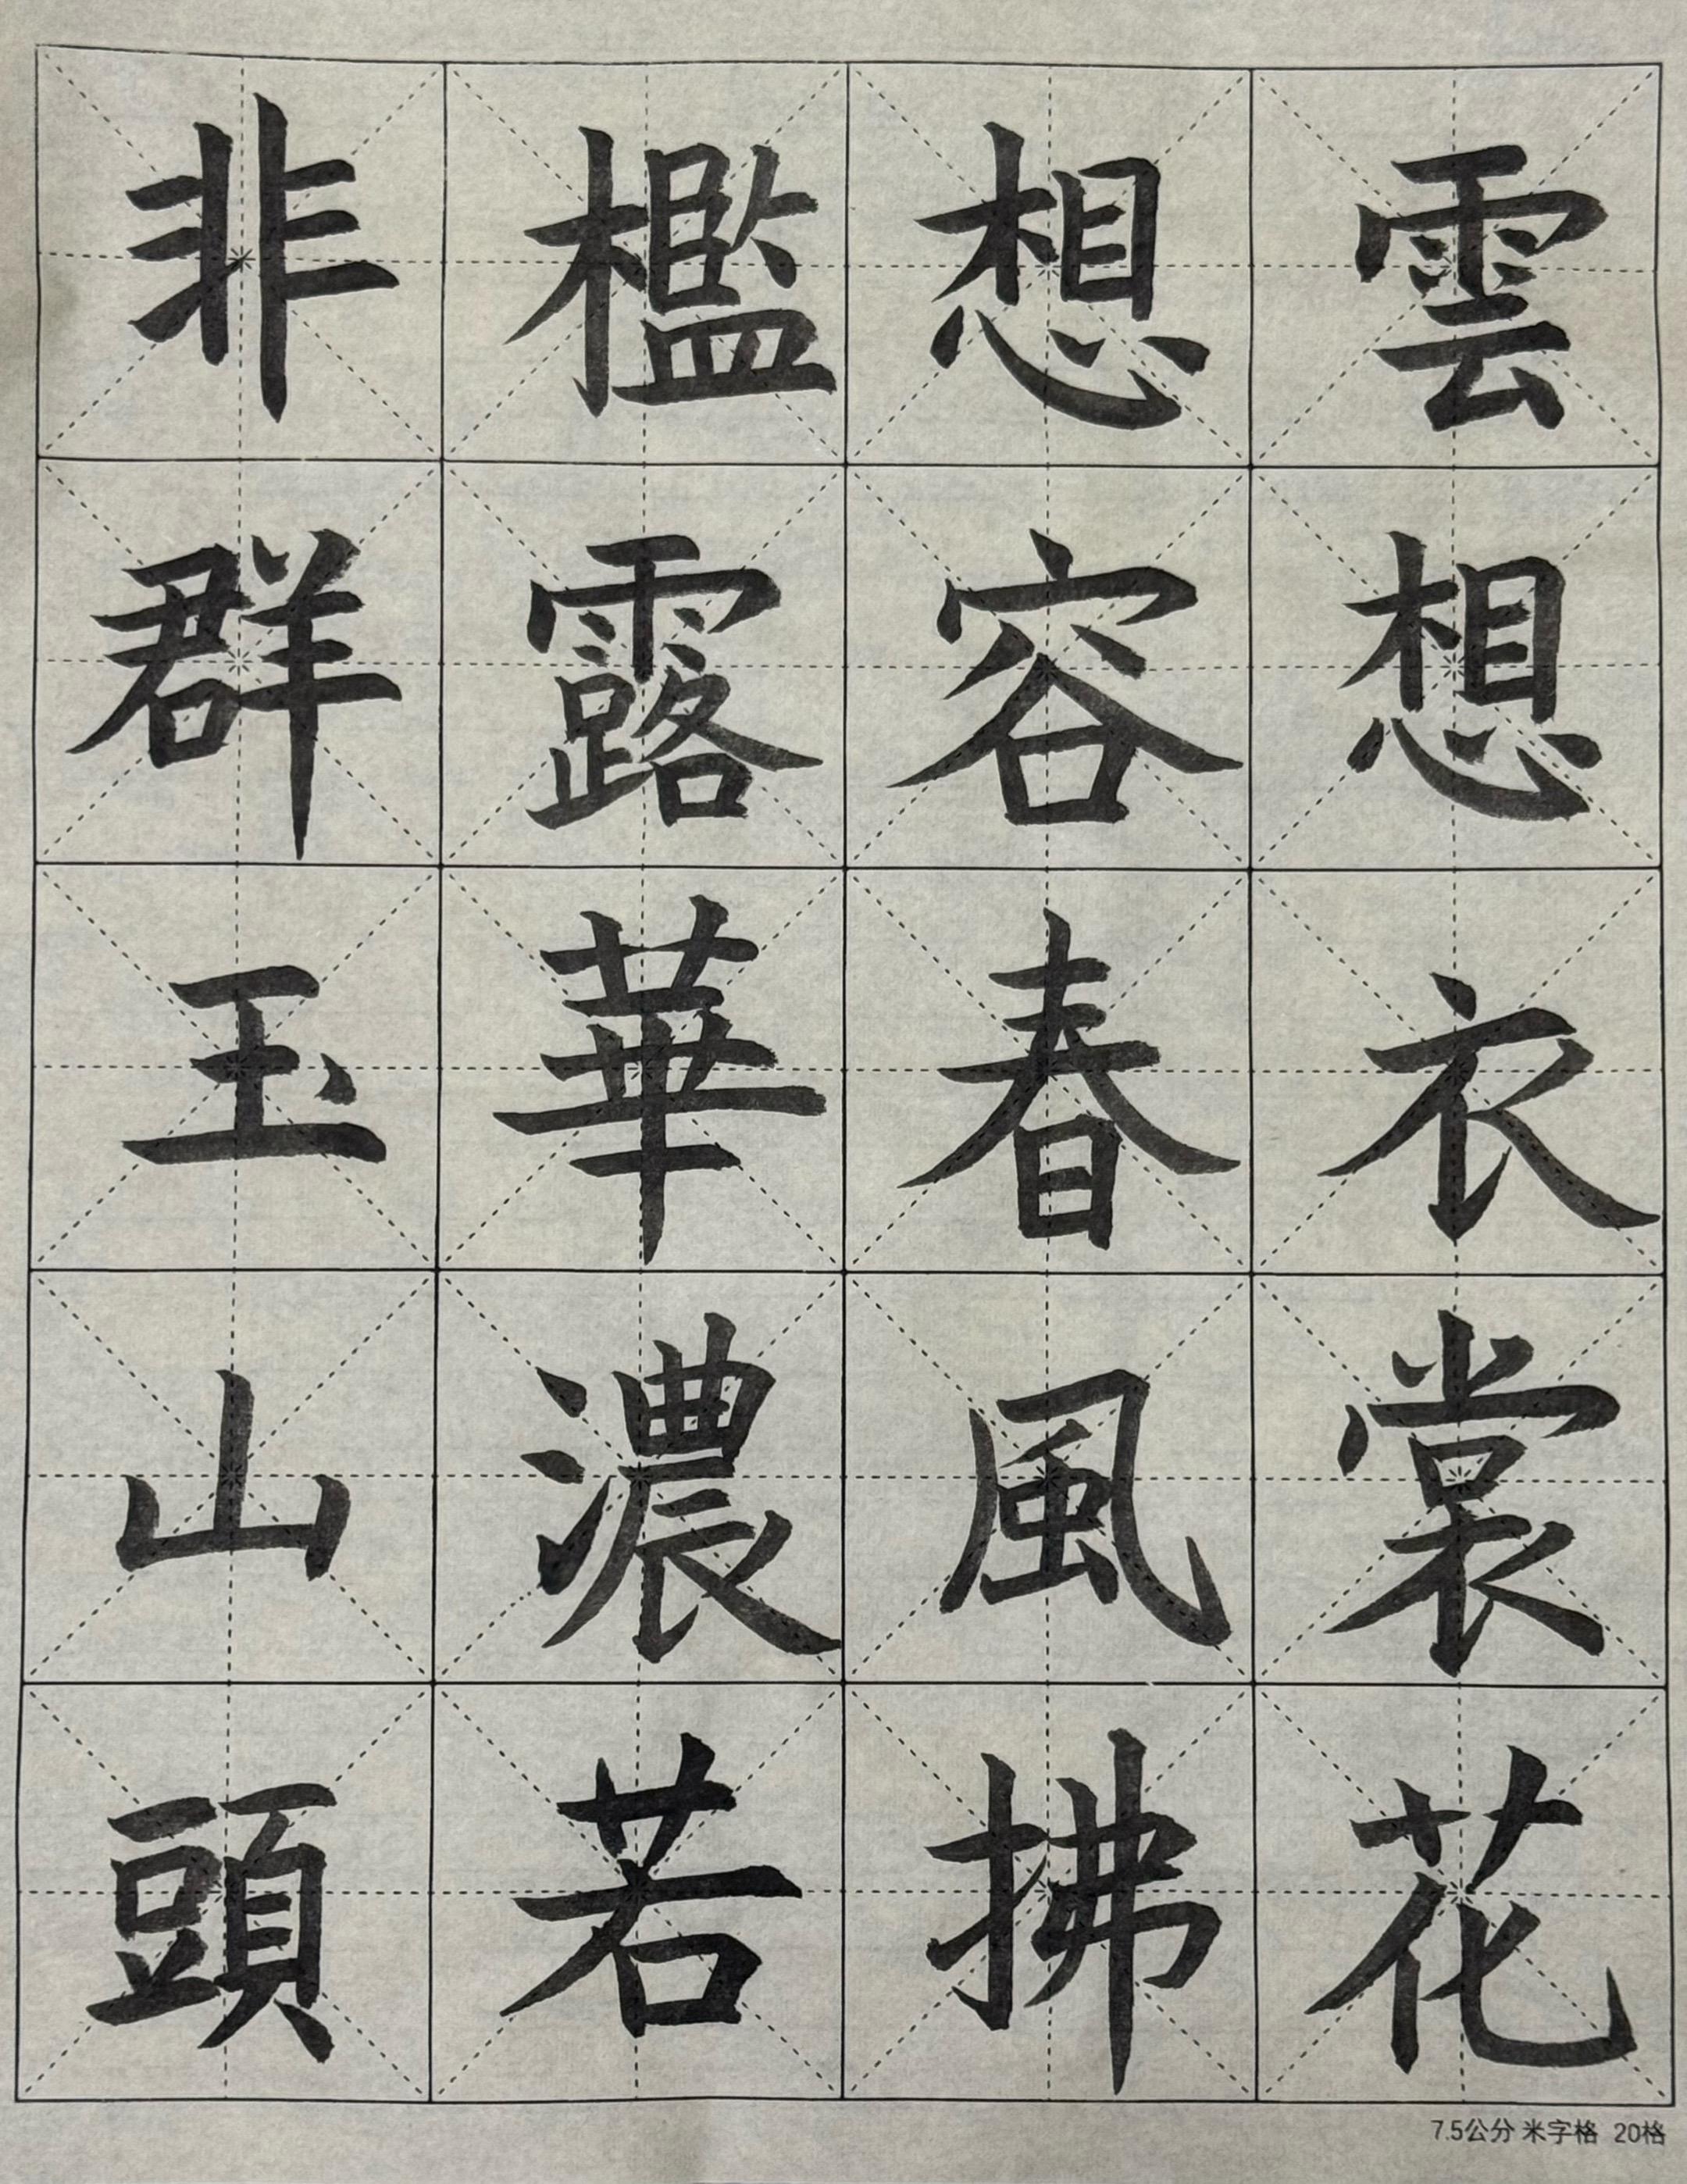 雲想衣裳花
想容春風拂
檻露華濃若
非群玉山頭
7.5公分 米字格 20格